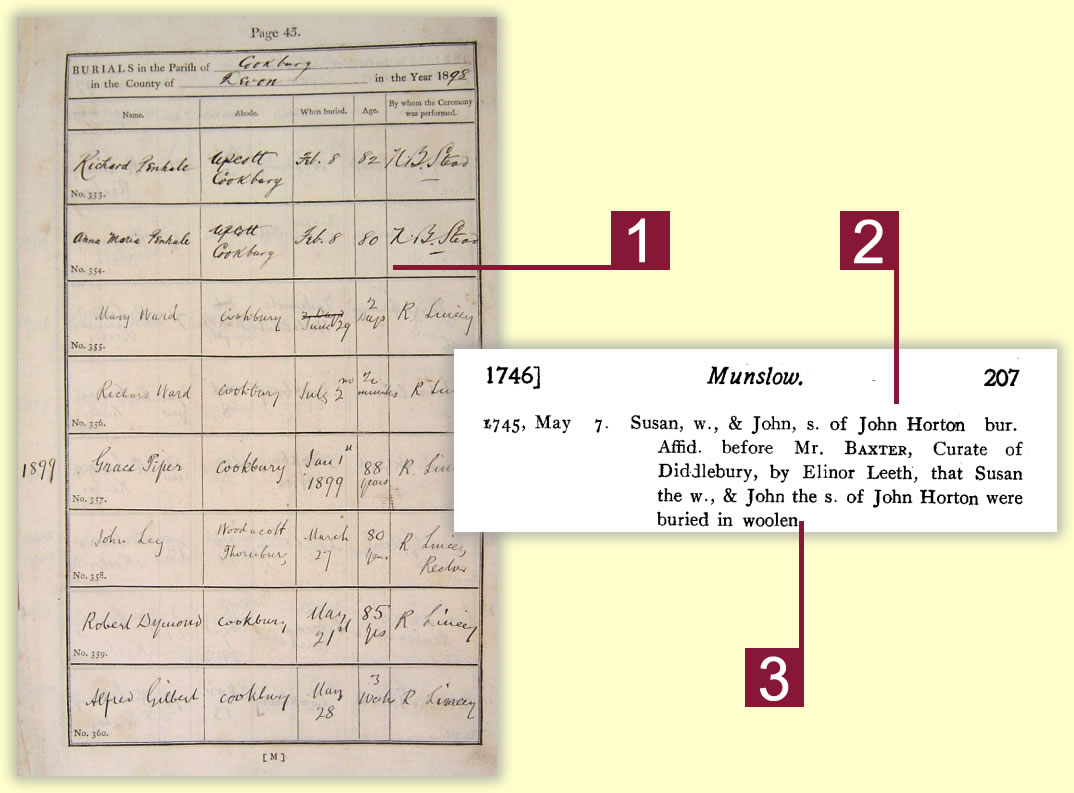 Page 43.
BURIALS in the Parish of Cookbury
in the County of Devon in the Year 1898
Name. Abode. When buried. Age. By whom the Ceremony was performed.
Richard Penhale Upcott Cookbury Feb. 8 82 N. B. Stead
No. 353.
Anna Maria Penhale Upcott Cookbury Feb. 8 80 N. B. Stead
No. 354.
Mary Ward Cookbury June 29 2 Days R Lincey
No. 355.
Richard Ward Cookbury July 2nd minutes R
No. 356.
1899 Grace Piper Cookbury Jan 1st 1899 88 years R.
No. 357.
John Ley Woodacott Thornbury March 27 80 years R Lincey Rector
No. 358.
Robert Dymond Cookbury May 21st 85 yrs R. Lincey
No. 359.
Alfred Gilbert Cookbury May 28 3 Week R. Lincey
No. 360.
[M]
1
2
1746] Munslow. 207
1745, May 7. Susan, w., & John, s. of John Horton bur.
Affid. before Mr. BAXTER, Curate of
Diddlebury, by Elinor Leeth, that Susan
the w., & John the s. of John Horton were
buried in woolen
3